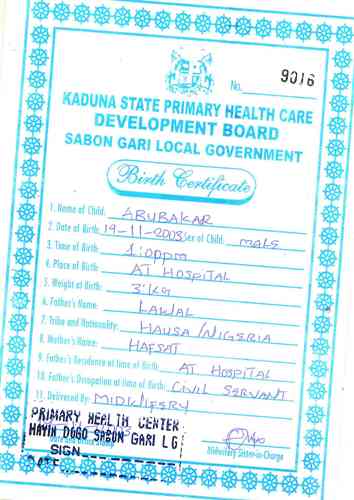 No. 9016
KADUNA STATE PRIMARY HEALTH CARE
DEVELOPMENT BOARD
SABON GARI LOCAL GOVERNMENT
Birth Certificate
1. Name of Child: ABUBAKAR
2. Date of Birth: 19-11-2003 Sex of Child: MALE
3. Time of Birth: 1:00pm
4. Place of Birth: AT HOSPITAL
5. Weight of Birth: 3.KG
6. Father's Name: LAWAL
7. Tribe and Nationality: HAUSA/NIGERIA
8. Mother's Name: HAFSAT
9. Father's Residence at time of Birth: AT HOSPITAL
10. Father's Occupation at time of Birth: CIVIL SERVANT
11. Delivered By: MIDWIFERY
PRIMARY HEALTH CENTER
HAYIN DOGO SABON GARI LG
SIGN
DATE
Midwifery Sister-in-Charge